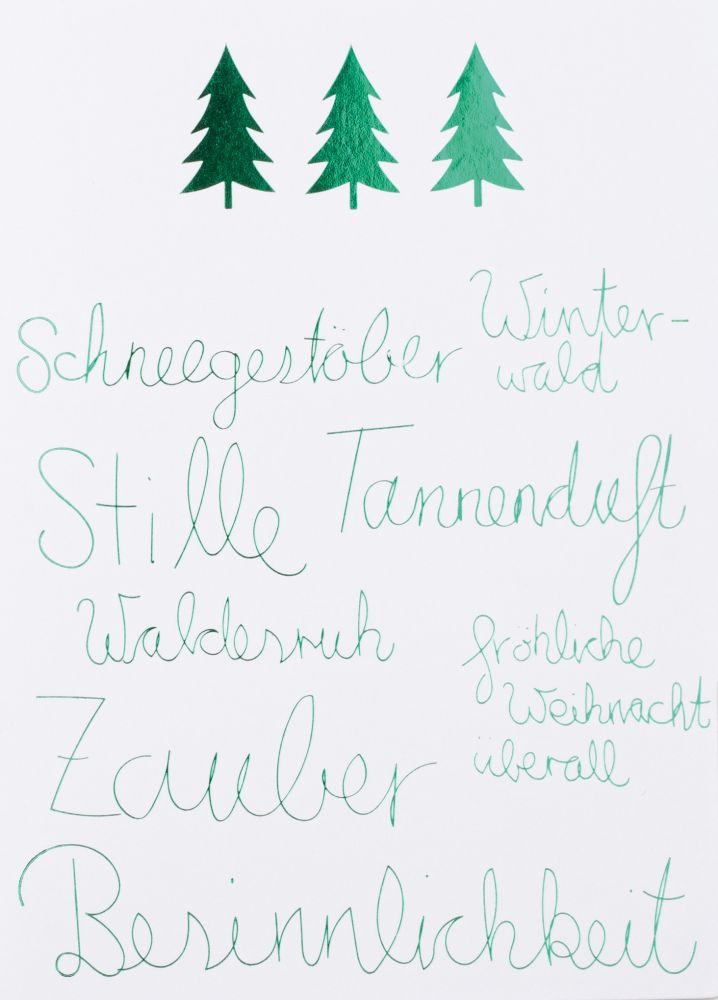 Schneegestöber
Winter-
wald
Stille
Tannenduft
Waldesruh
fröhliche
Weihnacht
überall
Zauber
Besinnlichkeit